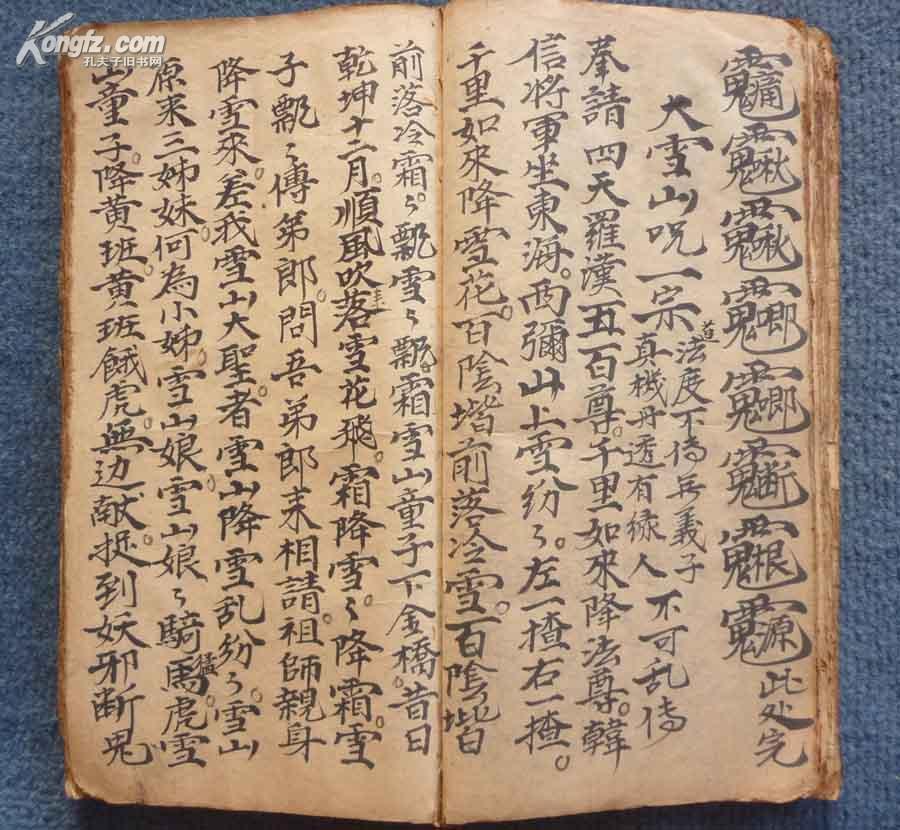 此处完
大雪山咒一宗
道法度不傳無義子
真機丹透有緣人
不可乱傳
奉請四天羅漢五百尊。千里如來降法尊。韓
信將軍坐東海。西彌山上雪紛々。左一揸右一揸。
千里如來降雪花。百陰堦前落冷雪。百陰堦
前落冷霜々飄雪々飄。霜雪山童子下金橋。昔日
乾坤十二月。順風吹落雪花飛。霜降雪々降霜。雪
子飄々傳弟郎。問吾弟郎来相請。祖師親身
降雪來。差我雪山大聖者。雪山降雪乱紛々。雪山
原来三姊妹。何為小姊。雪山娘。雪山娘々騎馬猛虎。雪
山童子降黄班。黄班餓虎。無边献捉到妖邪断鬼
Kongfz.com
孔夫子旧书网